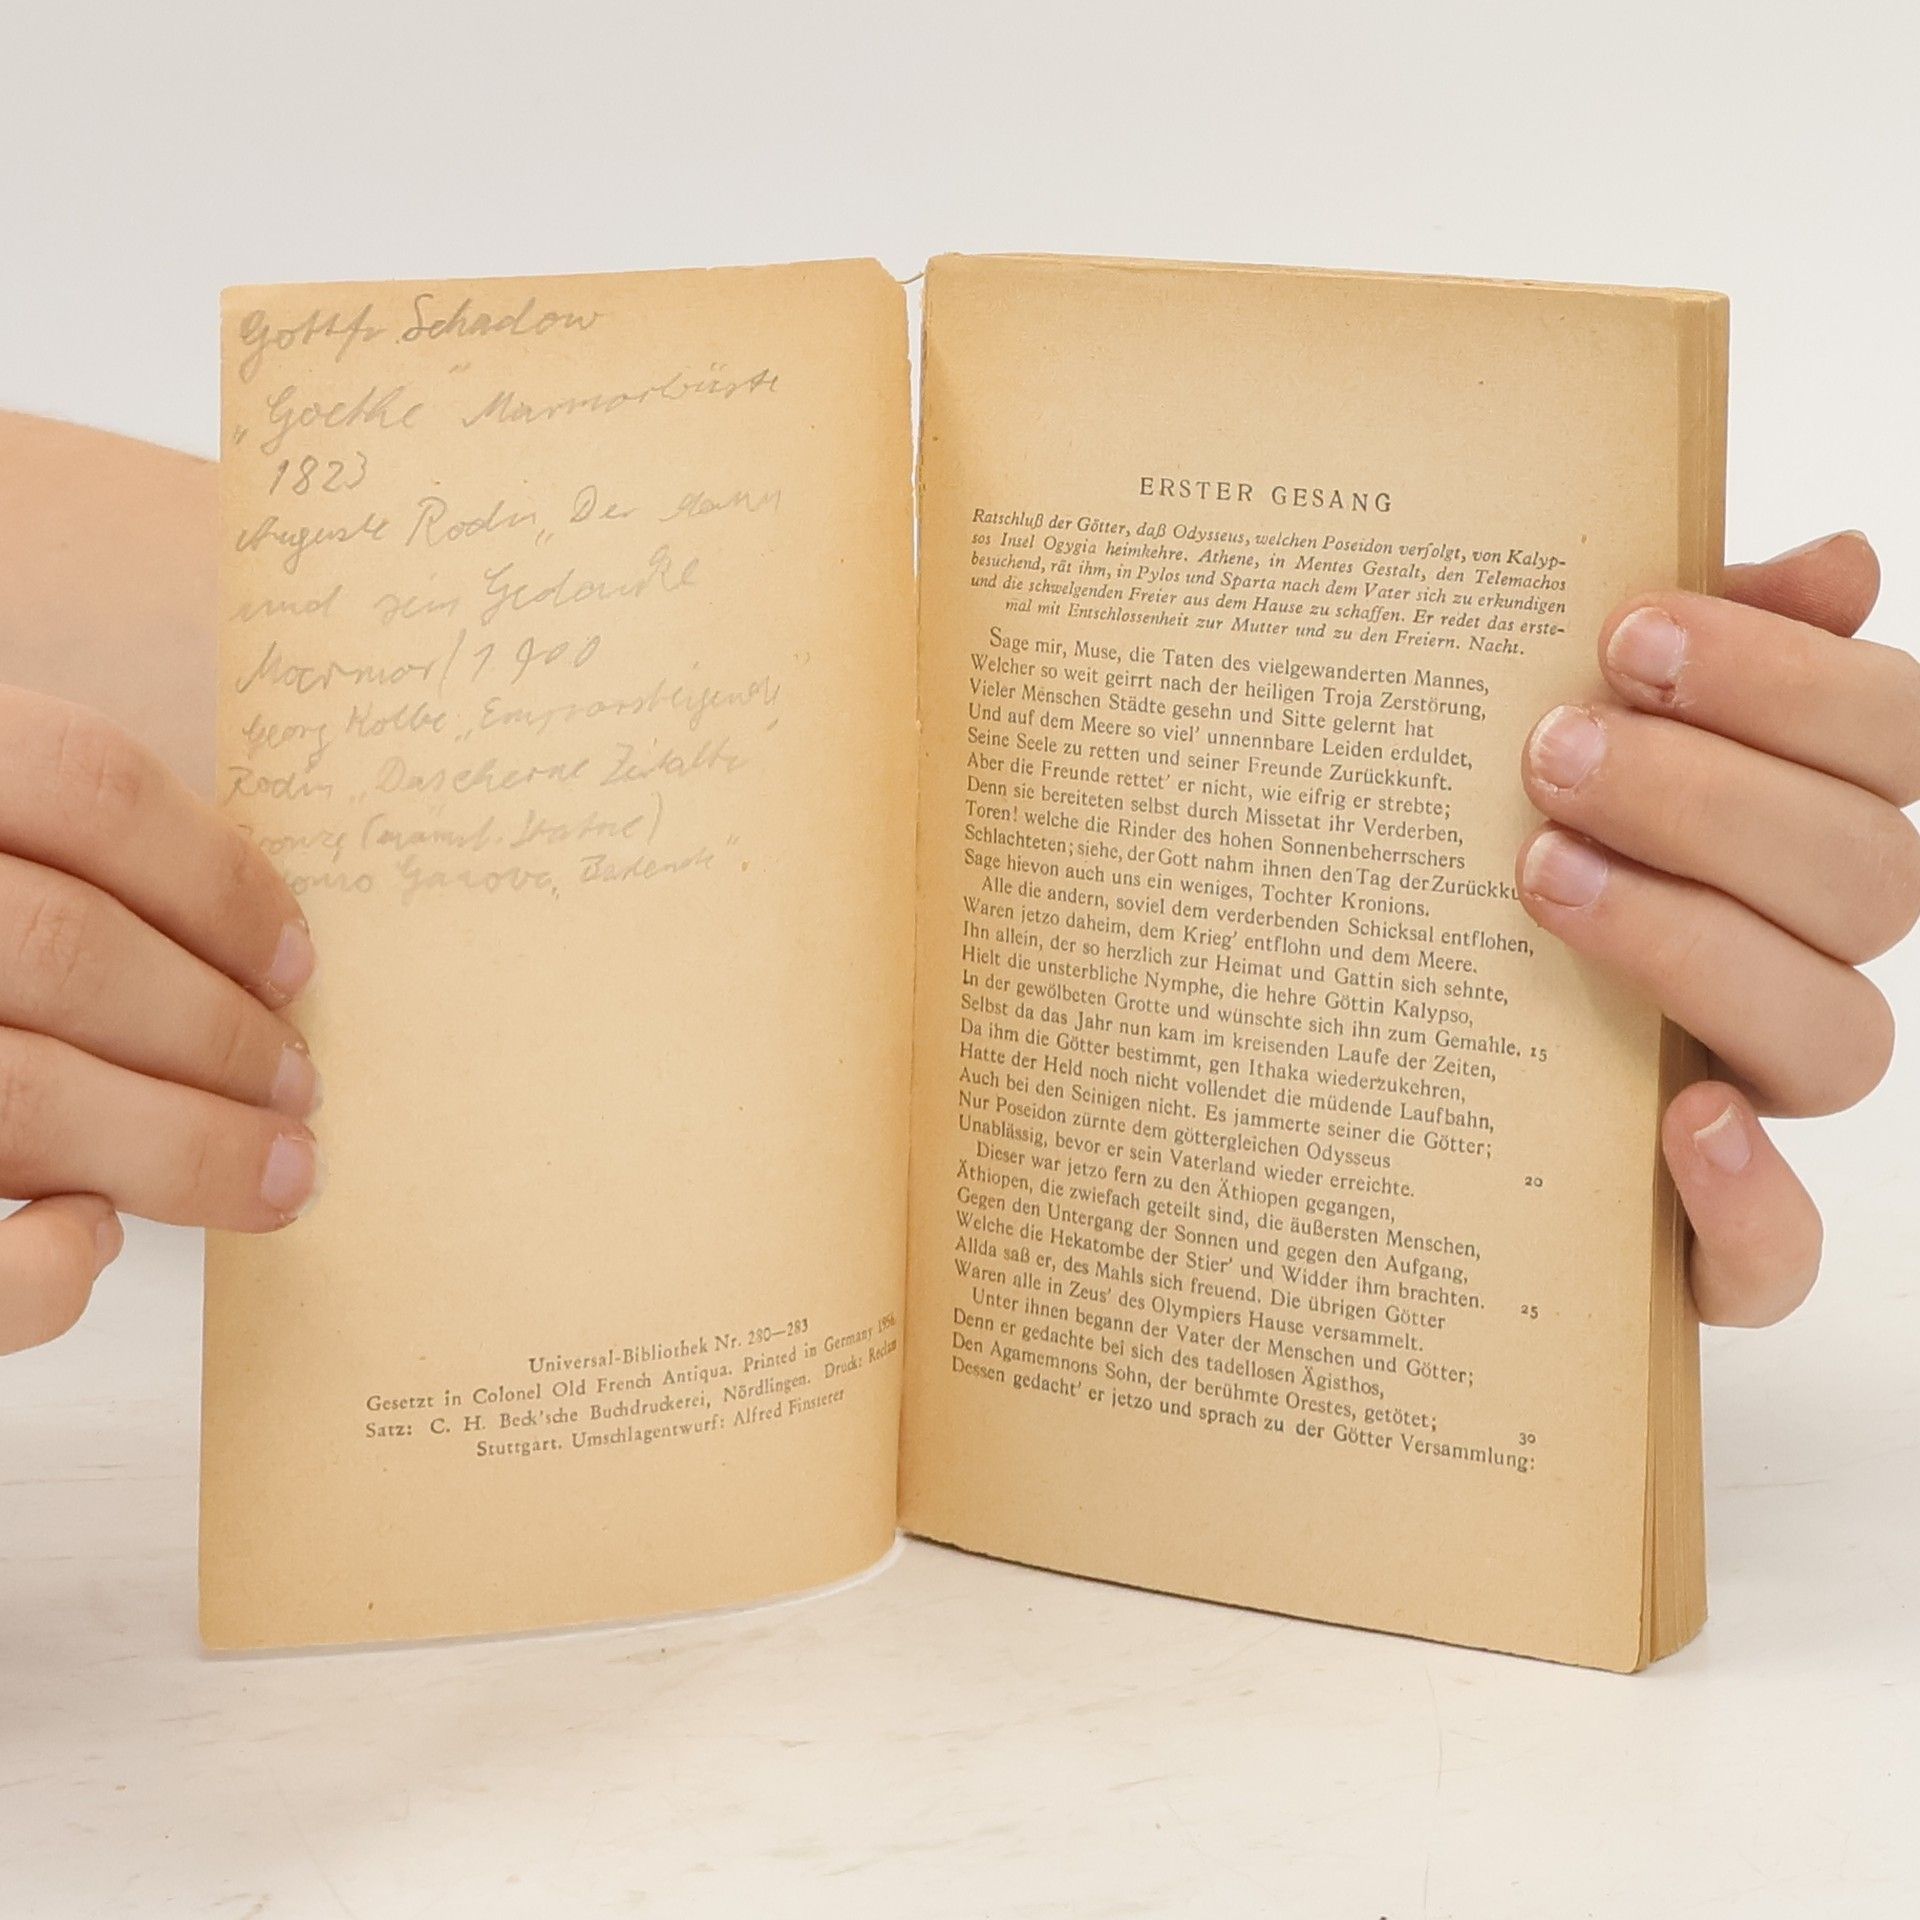 Gottfr. Schadow
„Goethe" Marmorbüste
1823
Auguste Rodin „Der Mann
und sein Gedanke
Marmor / 1900
Georg Kolbe „Emporsteigende"
Rodin „Das eherne Zeitalter"
(männl. Statue)
Universal-Bibliothek Nr. 280—283
Gesetzt in Colonel Old French Antiqua. Printed in Germany 1956.
Satz: C. H. Beck'sche Buchdruckerei, Nördlingen. Druck: Reclam
Stuttgart. Umschlagentwurf: Alfred Finsterer
ERSTER GESANG
Ratschluß der Götter, daß Odysseus, welchen Poseidon verfolgt, von Kalyp-
sos Insel Ogygia heimkehre. Athene, in Mentes Gestalt, den Telemachos
besuchend, rät ihm, in Pylos und Sparta nach dem Vater sich zu erkundigen
und die schwelgenden Freier aus dem Hause zu schaffen. Er redet das erste-
mal mit Entschlossenheit zur Mutter und zu den Freiern. Nacht.
Sage mir, Muse, die Taten des vielgewanderten Mannes,
Welcher so weit geirrt nach der heiligen Troja Zerstörung,
Vieler Menschen Städte gesehn und Sitte gelernt hat
Und auf dem Meere so viel' unnennbare Leiden erduldet,
Seine Seele zu retten und seiner Freunde Zurückkunft.
Aber die Freunde rettet' er nicht, wie eifrig er strebte;
Denn sie bereiteten selbst durch Missetat ihr Verderben,
Toren! welche die Rinder des hohen Sonnenbeherrschers
Schlachteten; siehe, der Gott nahm ihnen den Tag der Zurückku
Sage hievon auch uns ein weniges, Tochter Kronions.
Alle die andern, soviel dem verderbenden Schicksal entflohen,
Waren jetzo daheim, dem Krieg' entflohn und dem Meere.
Ihn allein, der so herzlich zur Heimat und Gattin sich sehnte,
Hielt die unsterbliche Nymphe, die hehre Göttin Kalypso,
In der gewölbeten Grotte und wünschte sich ihn zum Gemahle. 15
Selbst da das Jahr nun kam im kreisenden Laufe der Zeiten,
Da ihm die Götter bestimmt, gen Ithaka wiederzukehren,
Hatte der Held noch nicht vollendet die müdende Laufbahn,
Auch bei den Seinigen nicht. Es jammerte seiner die Götter;
Nur Poseidon zürnte dem göttergleichen Odysseus 20
Unablässig, bevor er sein Vaterland wieder erreichte.
Dieser war jetzo fern zu den Äthiopen gegangen,
Äthiopen, die zwiefach geteilt sind, die äußersten Menschen,
Gegen den Untergang der Sonnen und gegen den Aufgang,
Welche die Hekatombe der Stier' und Widder ihm brachten. 25
Allda saß er, des Mahls sich freuend. Die übrigen Götter
Waren alle in Zeus' des Olympiers Hause versammelt.
Unter ihnen begann der Vater der Menschen und Götter;
Denn er gedachte bei sich des tadellosen Ägisthos,
Den Agamemnons Sohn, der berühmte Orestes, getötet; 30
Dessen gedacht' er jetzo und sprach zu der Götter Versammlung: